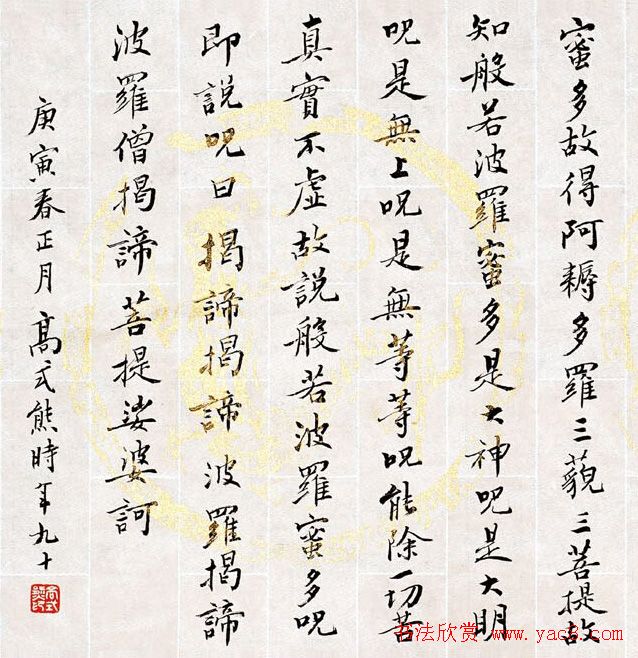 蜜多故得阿耨多羅三藐三菩提故
知般若波羅蜜多是大神呪是大明
呪是無上呪是無等等呪能除一切苦
真實不虛故說般若波羅蜜多呪
即說呪曰揭諦揭諦波羅揭諦
波羅僧揭諦菩提娑婆訶
庚寅春正月高式熊時年九十
高式熊印
书法欣赏 www.yac8.com